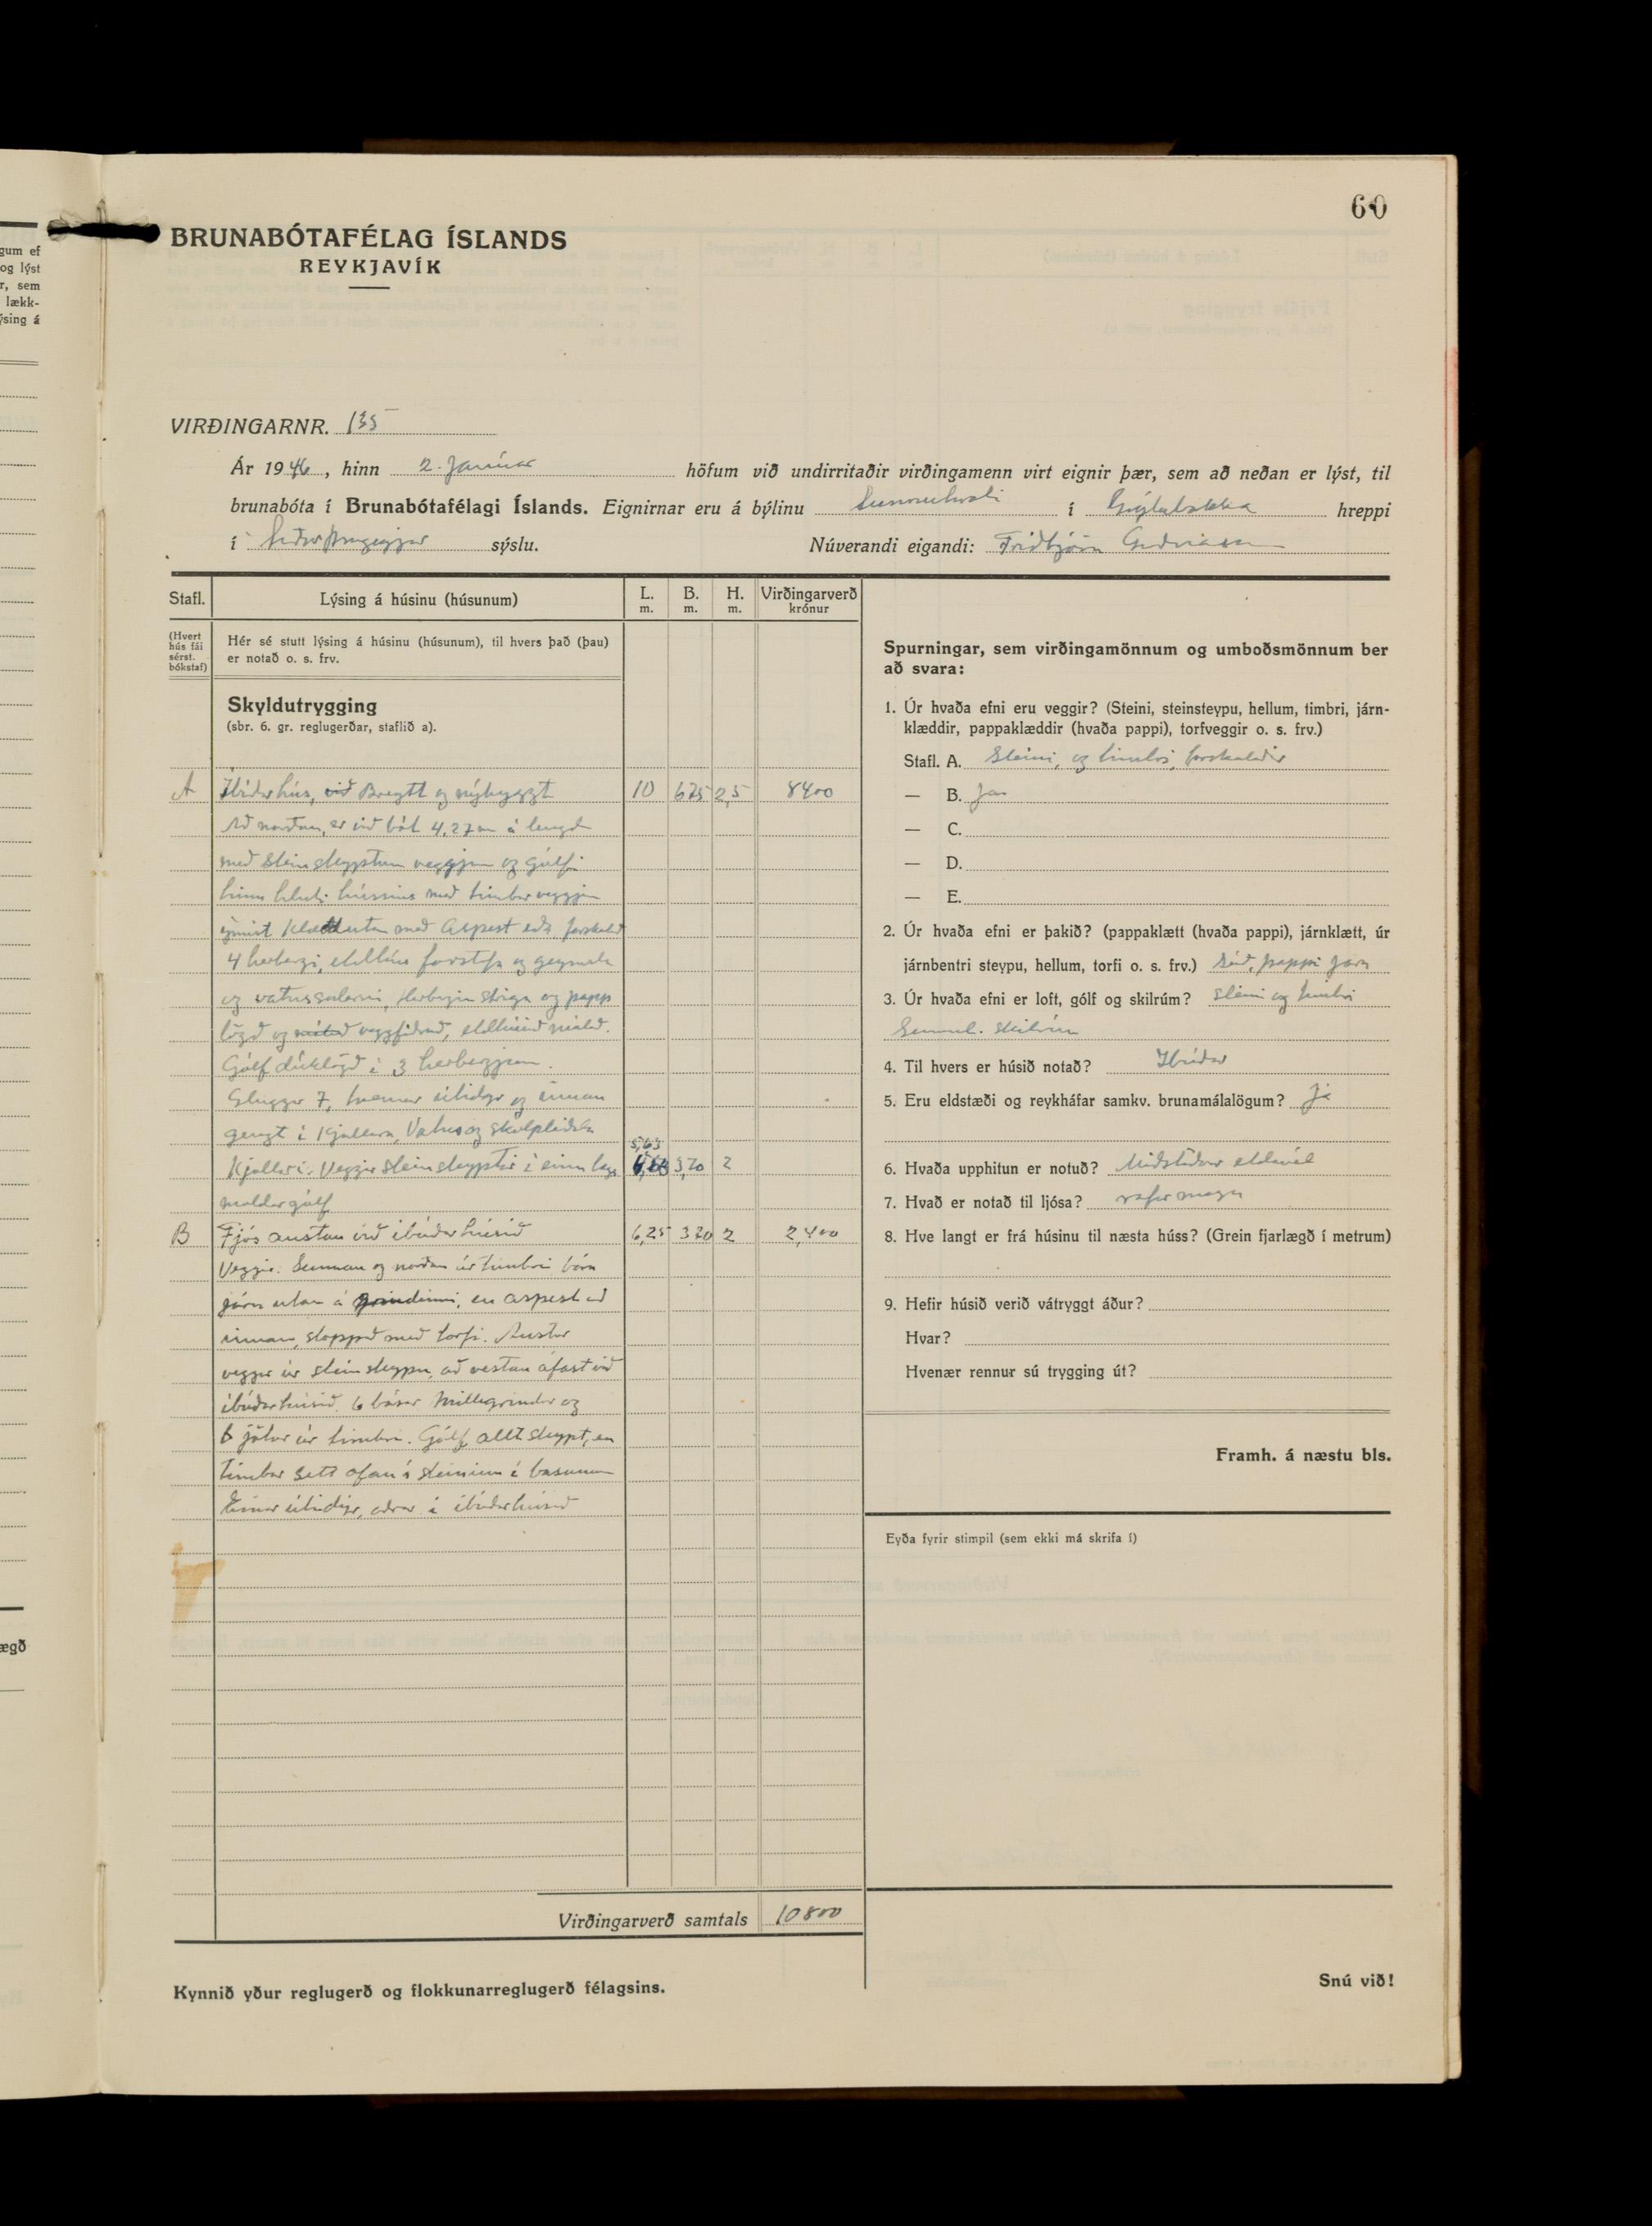 gum ef
og lýst
r, sem
lækk-
ýsing á
ægð
60
BRUNABÓTAFÉLAG ÍSLANDS
REYKJAVÍK
VIRÐINGARNR. 135
Ár 1946, hinn 2. Janúar höfum við undirritaðir virðingamenn virt eignir þær, sem að neðan er lýst, til
brunabóta í Brunabótafélagi Íslands. Eignirnar eru á býlinu Sunnuhvoli í Grýtubakka hreppi
í Suður Þingeyjar sýslu. Núverandi eigandi: Friðbjörn Guðnason
Stafl. Lýsing á húsinu (húsunum) L. m. B. m. H. m. Virðingarverð krónur
(Hvert hús fái sérst. bókstaf)
Hér sé stutt lýsing á húsinu (húsunum), til hvers það (þau)
er notað o. s. frv.
Skyldutrygging
(sbr. 6. gr. reglugerðar, staflið a).
A Íbúðarhús, við Breytt og nýbyggt 10 6,75 2,5 8400
Að norðan, er við bót 4,27 m á lengd
með steinsteyptum veggjum og gólfi
hinn hluti hússins með timburveggjum
ýmist klætt utan með Aspest eða forskalað
4 herbergi, eldhús forstofa og geymsla
og vatnssalerni, Herbergin striga og papp
lögð og málað veggfóðruð, eldhúsið málað.
Gólf dúklögð í 3 herbergjum.
Gluggar 7, tvennar útidyr og innan
gengt í Kjallara, Vatns og skolpleiðsla
Kjallari: Veggir steinsteyptir í einu lagi 5,63 3,70 2
moldargólf
B Fjós austan við íbúðarhúsið 6,25 3 70 2 2,400
Veggir: Sunnan og norðan úr timbri báru
járn utan á grindinni, en aspest að
innan, stoppað með torfi. Austur
veggur úr steinsteypu, að vestan áfast við
íbúðarhúsið. 6 básar Milligrindur og
6 jötur úr timbri. Gólf allt steypt, en
timbur sett ofan á steininn í básunum
Einar útidyr, aðrar í íbúðarhúsið
Virðingarverð samtals 10800
Kynnið yður reglugerð og flokkunarreglugerð félagsins.
Spurningar, sem virðingamönnum og umboðsmönnum ber
að svara:
1. Úr hvaða efni eru veggir? (Steini, steinsteypu, hellum, timbri, járn-
klæddir, pappaklæddir (hvaða pappi), torfveggir o. s. frv.)
Stafl. A. Steini, og timbri, forskalaðir
— B. Já
— C.
— D.
— E.
2. Úr hvaða efni er þakið? (pappaklætt (hvaða pappi), járnklætt, úr
járnbentri steypu, hellum, torfi o. s. frv.) Súð, pappi járn
3. Úr hvaða efni er loft, gólf og skilrúm? Steini og timbri
skilrúm
4. Til hvers er húsið notað? Íbúðar
5. Eru eldstæði og reykháfar samkv. brunamálalögum? Já
6. Hvaða upphitun er notuð? Miðstöðvar eldavél
7. Hvað er notað til ljósa? rafurmagn
8. Hve langt er frá húsinu til næsta húss? (Grein fjarlægð í metrum)
9. Hefir húsið verið vátryggt áður?
Hvar?
Hvenær rennur sú trygging út?
Framh. á næstu bls.
Eyða fyrir stimpil (sem ekki má skrifa í)
Snú við!